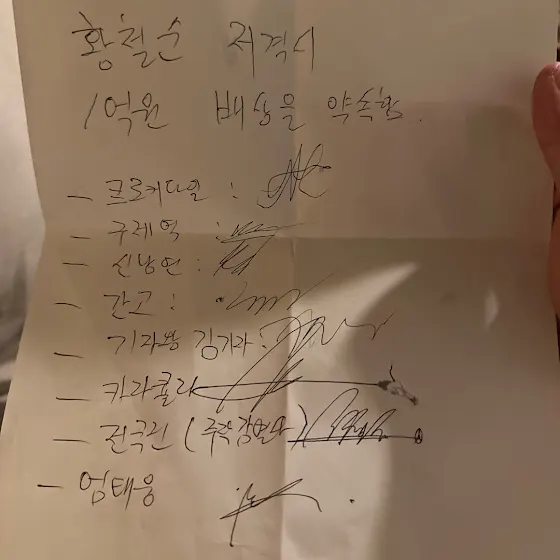 황철순 저격시
1억원 배상을 약속함.
- 크로커다일 :
- 구제역 :
- 신남연 :
- 간고 :
- 기자왕 김기자 :
- 카라큘라
- 전국진 (주작감별사)
- 엄태웅